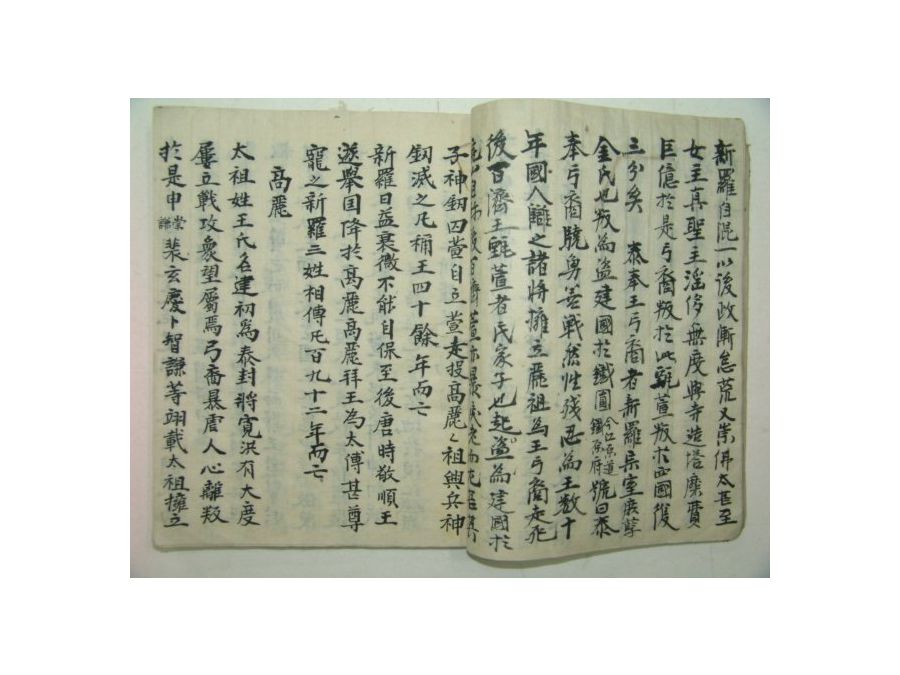 新羅自混一以後政漸怠荒又崇佛太甚至
女主真聖王淫侈無度興寺造塔糜費
巨億於是弓裔叛於北甄萱叛於西國復
三分矣 泰奉王弓裔者新羅宗室庶孼
金氏也叛為盜建國於鐵圓今江原道鐵原府號曰泰
奉弓裔驍勇善戰然性殘忍為王數十
年國人離之諸將擁立麗祖為王弓裔走死
後百濟王甄萱者民家子也起盜為建國於
子神釰四萱自立萱走投高麗々祖興兵神
釰滅之凡稱王四十餘年而亡
新羅日益衰微不能自保至後唐時敬順王
遂舉国降於高麗高麗拜王為太傅甚尊
寵之新羅三姓相傳凡百九十二年而亡
高麗
太祖姓王氏名建初為泰封將寛洪有大度
屢立戰攻衆望屬焉弓裔暴虐人心離叛
於是申崇謙裴玄慶卜智謙等翊載太祖擁立